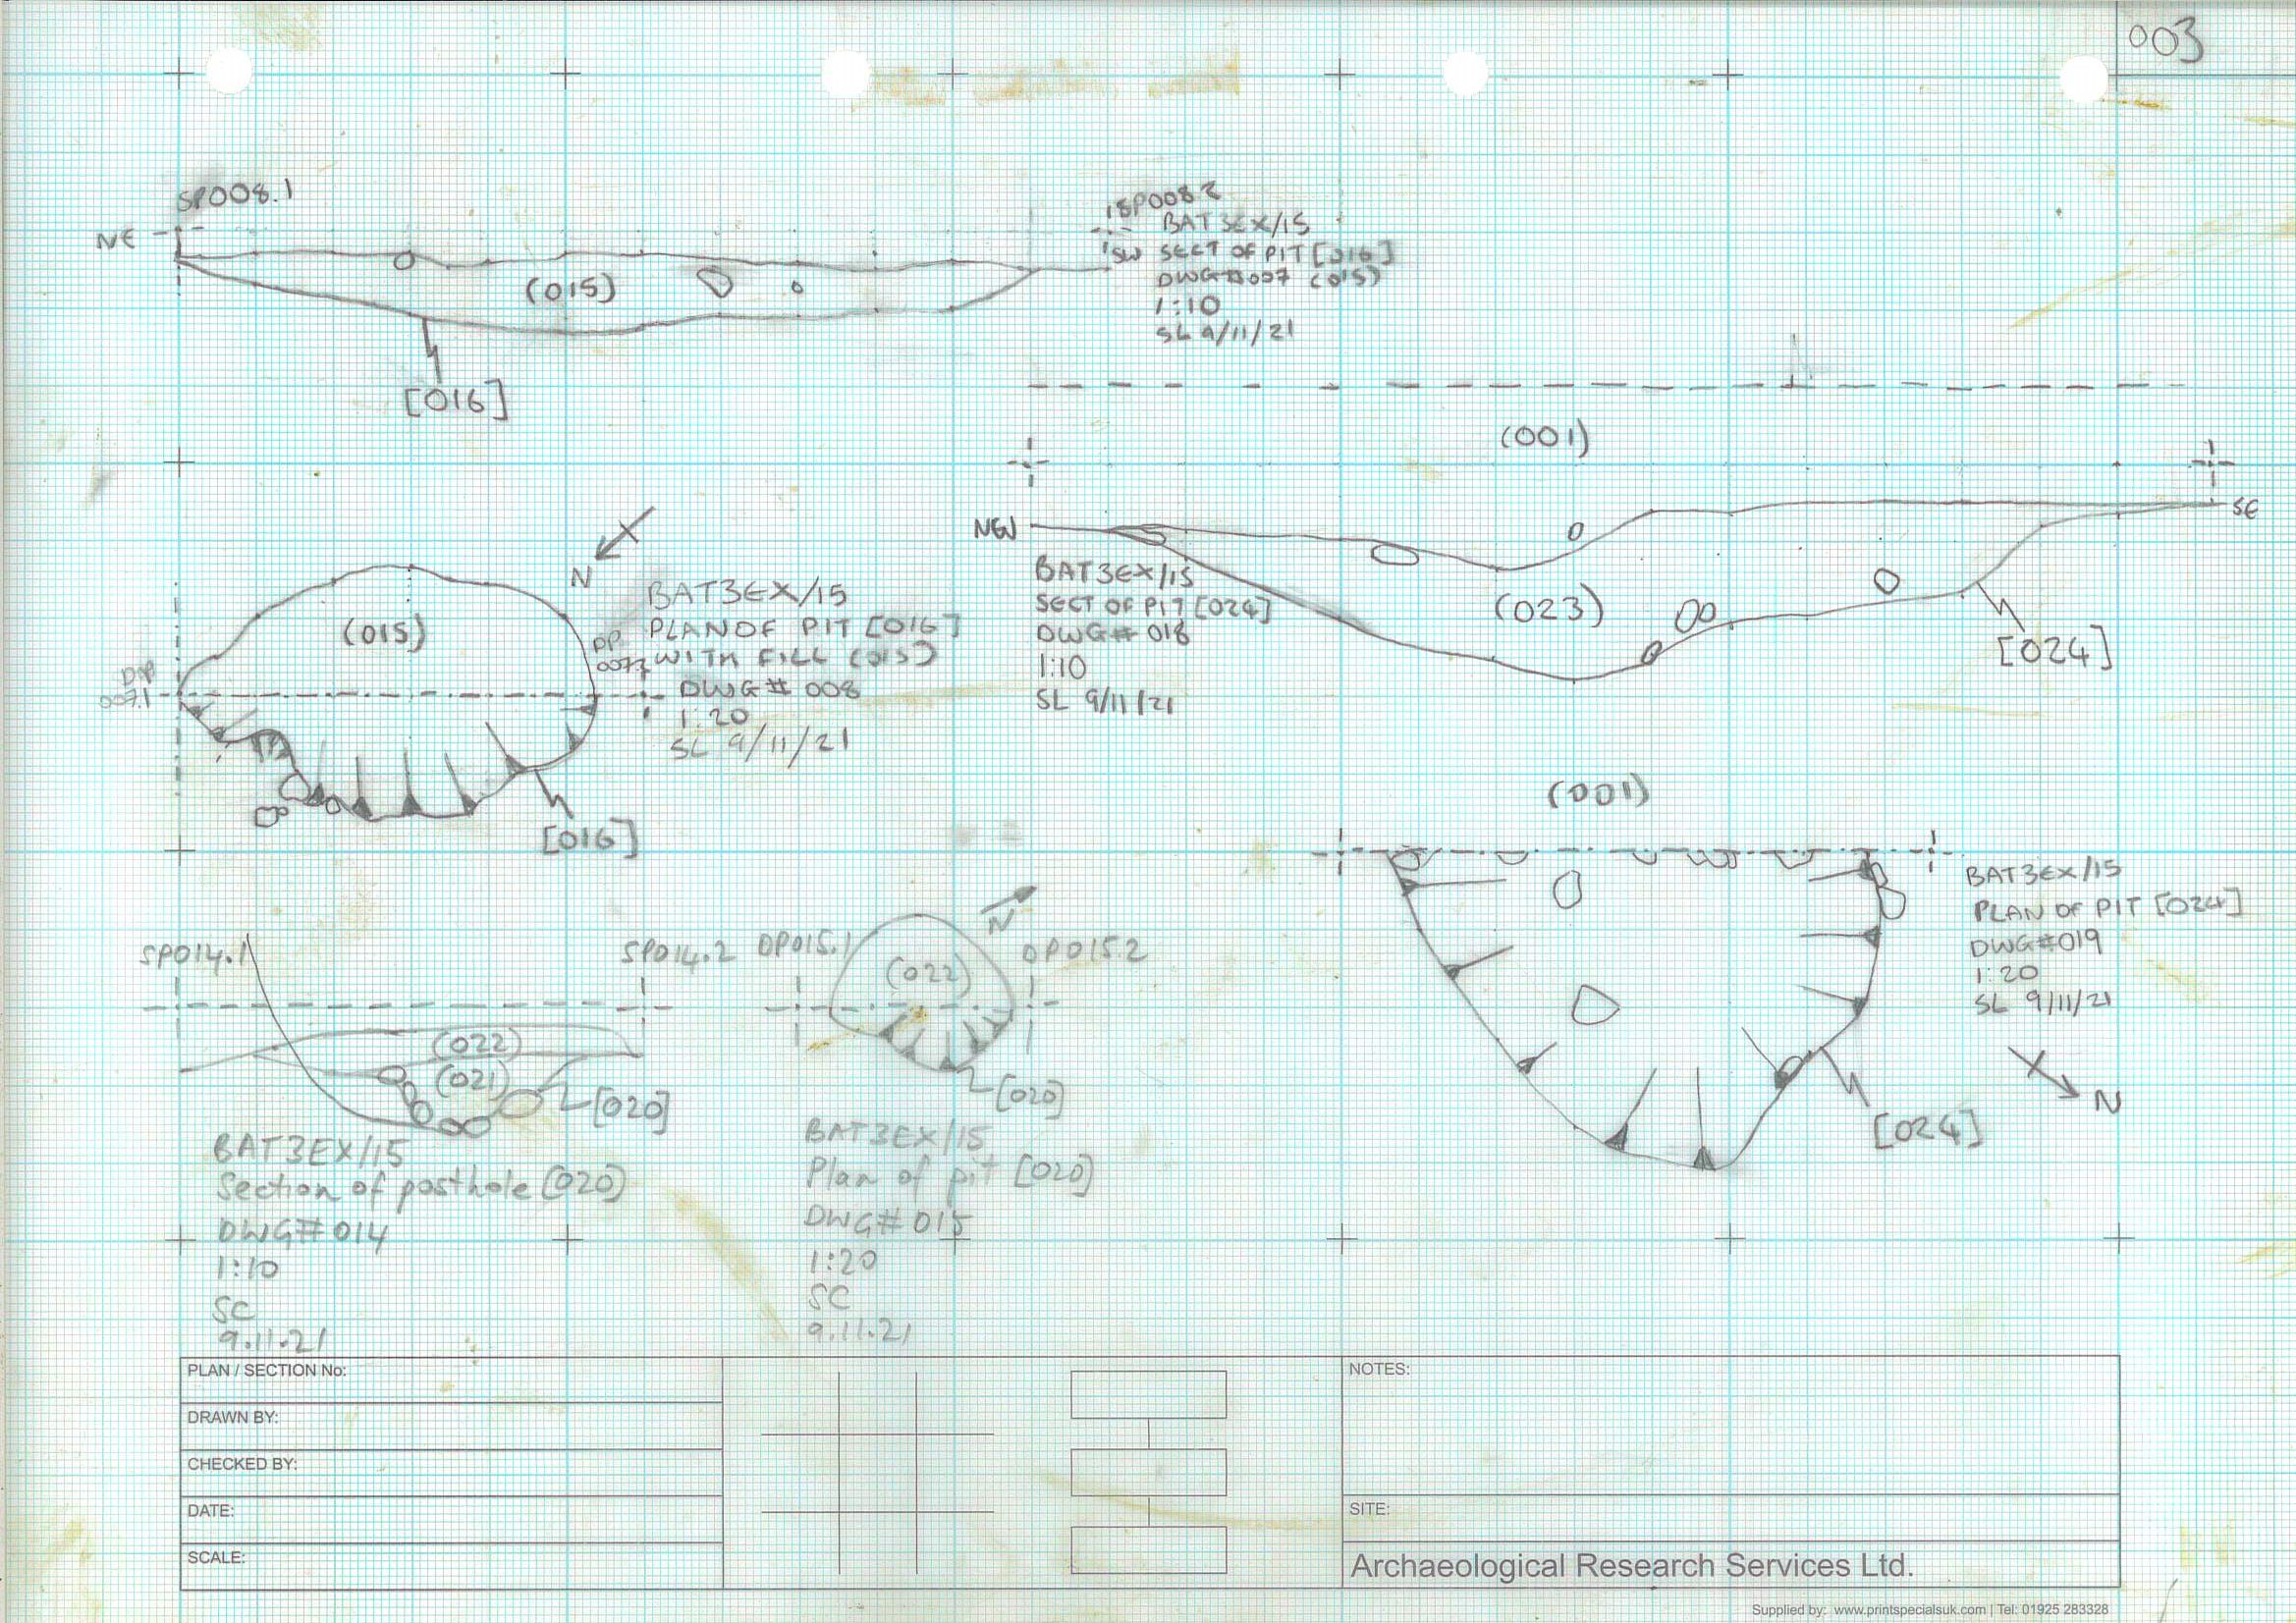 003
SP008.1
NE
SP008.2
BAT3EX/15
SW SECT OF PIT [016]
DWG#007 (015)
1:10
SL 9/11/21
(015)
[016]
(001)
NW
SE
BAT3EX/15
SECT OF PIT [024]
DWG# 018
1:10
SL 9/11/21
(023)
[024]
N
(015)
BAT3EX/15
PLAN OF PIT [016]
WITH FILL (015)
DWG# 008
1:20
SL 9/11/21
007.1
DP
[016]
(001)
BAT3EX/15
PLAN OF PIT [024]
DWG#019
1:20
SL 9/11/21
N
[024]
SP014.1
SP014.2
(022)
(021)
[020]
BAT3EX/15
Section of posthole [020]
DWG#014
1:10
SC
9.11.21
DP015.1
DP015.2
N
(022)
[020]
BAT3EX/15
Plan of pit [020]
DWG#015
1:20
SC
9.11.21
PLAN / SECTION No:
DRAWN BY:
CHECKED BY:
DATE:
SCALE:
NOTES:
SITE:
Archaeological Research Services Ltd.
Supplied by: www.printspecialsuk.com | Tel: 01925 283328